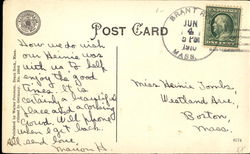 POST CARD
BRANT
JUN
1910
MASS.
How we do wish
our Heinie was
with us to help
enjoy the good
times. It is
certainly a beautiful
place and a certainly
crowd. Will phone
when I get back.
and love.
Marion H.
Miss Heinie Tombs,
Westland Ave,
Boston,
Mass.